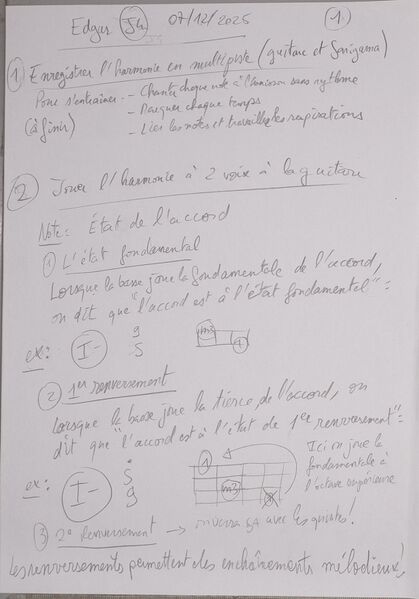 Edgar 54 07/12/2025 1
1 Enregistrer l'harmonie en multipiste (guitare et
Pour s'entraîner - Chanter chaque note à l'unisson sans rythme
- Marquer chaque temps
(à finir) - Lier les notes et travailler les respirations
2 Jouer l'harmonie à 2 voix à la guitare
Note: État de l'accord
1 L'état fondamental
Lorsque la basse joue la fondamentale de l'accord,
on dit que "l'accord est à l'état fondamental" =
ex: I- m3 1
2 1er renversement
Lorsque la basse joue la tierce de l'accord, on
dit que "l'accord est à l'état de 1er renversement" =
ex: I- 1 m3
Ici on joue la
fondamentale à
l'octave supérieure
3 2e Renversement → on verra ça avec les quintes!
Les renversements permettent des enchaînements mélodieux!